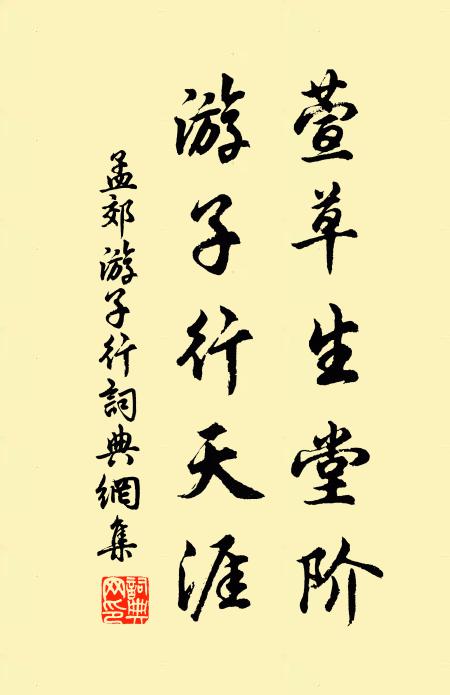 萱草生堂阶
游子行天涯
孟郊游子行詞典網集
詞典
网印